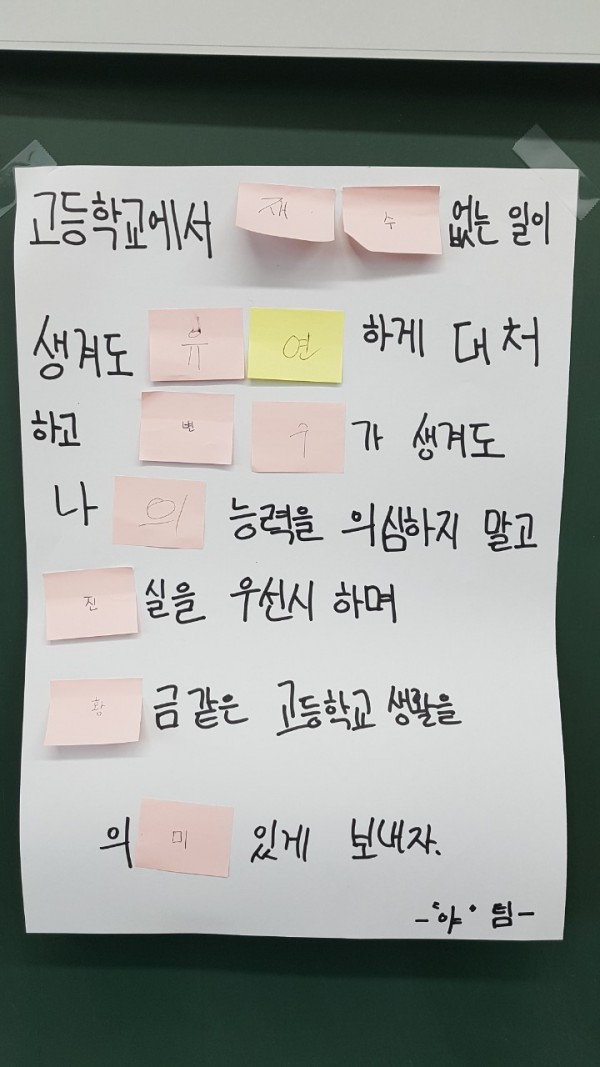 고등학교에서 재수 없는 일이
생겨도 유연하게 대처
하고 변수가 생겨도
나의 능력을 의심하지 말고
진실을 우선시 하며
황금같은 고등학교 생활을
의미 있게 보내자.
-"야" 팀-